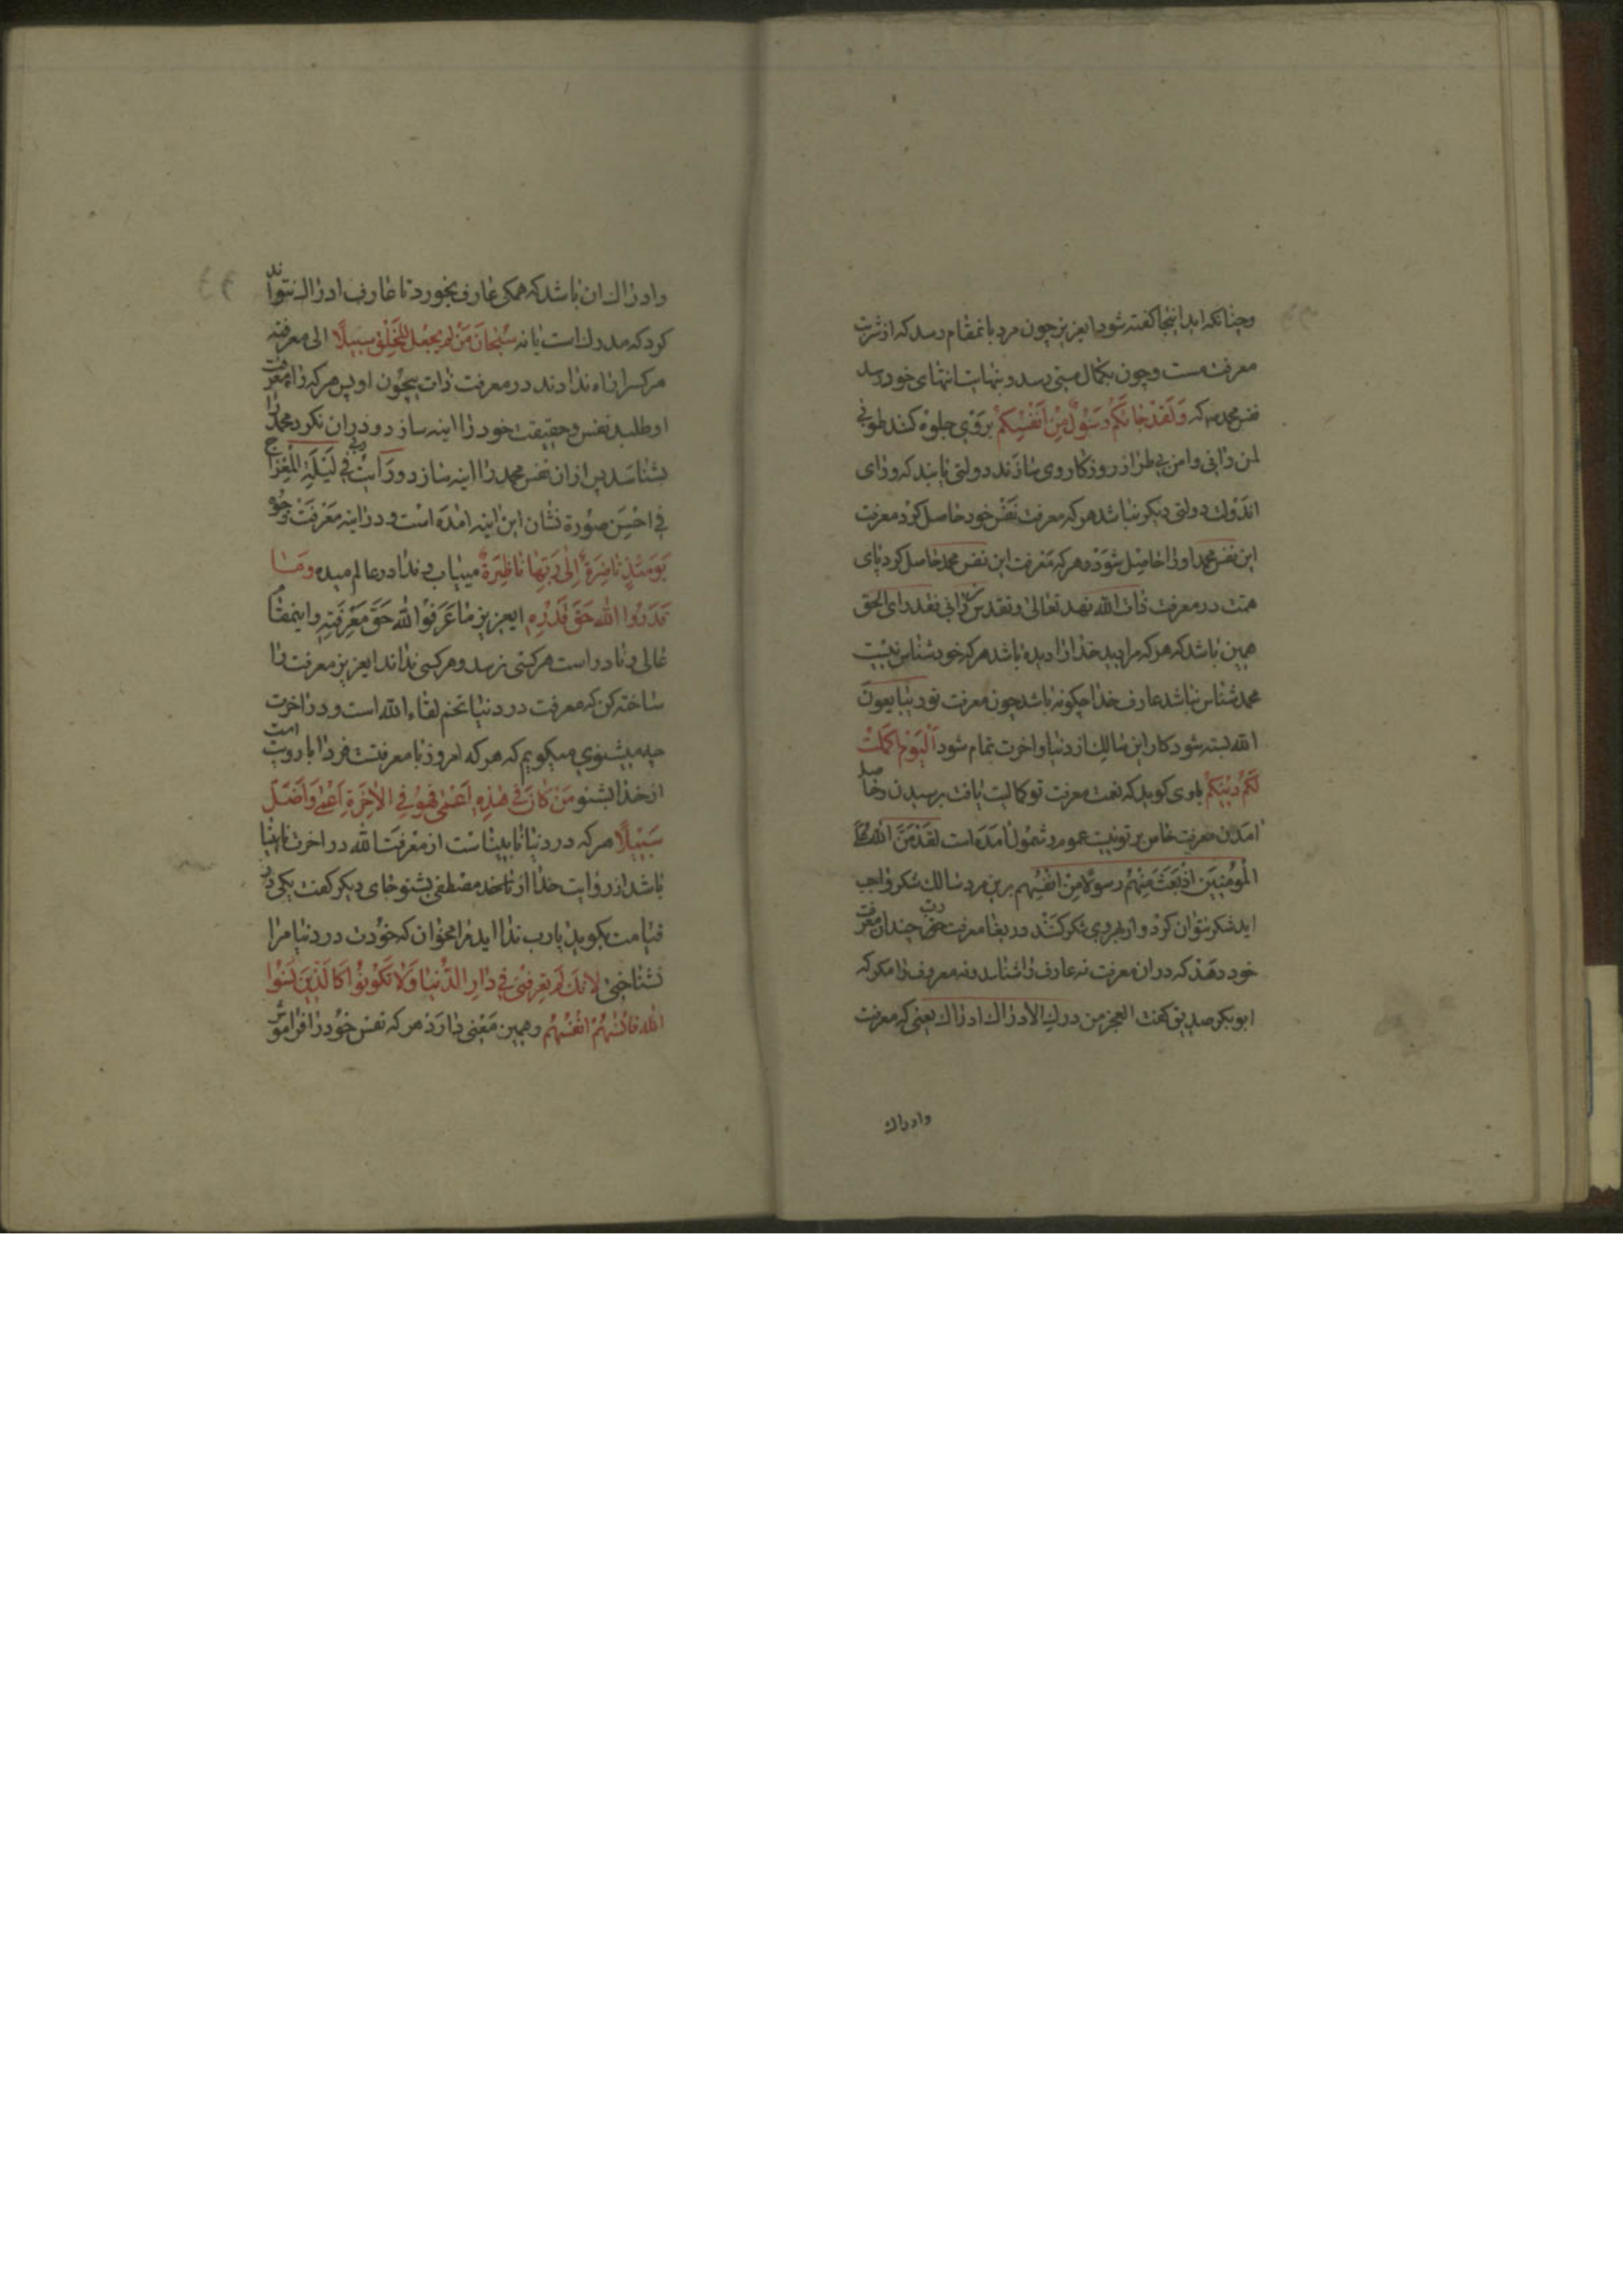 وچنانکه ابد اینجا کفته شود ایعزیز چون مرد بانمقام رسد که از شربت
معرفت مست وچون بکمال مستی رسد وبنهایت انتهای خود رسد
نفس محمد که وَلَقَدْ جَائَکُمْ رَسُوْلٌ مِنْ اَنْفُسِکُمْ بروی جلوه کند طوبی
لمن رانی وامن بی طراز روزکار وی سازند دولتی یابند که ورای
اندولت دولتی دیکر نباشد هر که معرفت نفس خود حاصل کرد معرفت
این نفس محمد اورا حاصل شود وهر که معرفت این نفس محمد حاصل کرد پای
همت در معرفت ذات الله نهد تعالی وتقدس من رانی فقد رای الحق
همین باشد که هر که مرا دید خدا را دیده باشد هر که خود شناس نیست
محمد شناس نباشد عارف خدا چکونه باشد چون معرفت نور یبایعون
الله بسته شود کار این سالك از دنیا واخرت تمام شود اَلْیَوْمَ اکمَلْتُ
لَکُمْ دِیْنَکُمْ باوی کوید که نعت معرفت تو کمالیت یافت برسیدن وحاصل
امدن معرفت خاص بر تو نیست عموم وشمول امده است لقد مَنَّ اللهُ علی
المؤمنین اذ بَعَثَ مِنْهُمْ رسولا مِنْ انفُسِهِم برین مرد سالك شکر واجب
اید شکر نتوان کرد واز بهر وی شکر کنند ودر بقا معرفت رب چندان معرفت
خود دهد که دران معرفت نه عارف را شناسد ونه معروف را مکر که
ابوبکر صدیق کفت العجز من درك الادراك ادراك یعنی که معرفت
وادراك
وادراك ان باشد که همکی عارف بخورد تا عارف ادراك نتواند
کرد که مدرك است یا نه سُبْحَانَ مَنْ لم یجعل لِلْخَلْقِ سبیلًا الی معرفته
هر کس را راه ندادند در معرفت ذات بیچون او پس هر که راه معرفت
او طلبد نفس وحقیقت خود را اینه سازد ودران نکرد محمد را
بشناسد پس ازان نفس محمد را اینه سازد ورَاَیْتُ ربی فی لَیْلَةِ الْمِعْرَاج
فی احْسَنِ صورة نشان این اینه امده است ودر اینه معرفت وجوه
یَوْمَئِذٍ نَاضِرَةٌ اِلٰی رَبِّهَا نَاظِرَةٌ مییاب وندا در عالم میده وَمَا
قَدَرُوا اللهَ حَقَّ قَدْرِهِ ایعزیز مَا عَرَفُوْا اللهَ حَقَّ مَعْرِفَتِهِ واینمقام
عالی ونادر است هر کسی نرسد وهر کسی نداند ایعزیز معرفت را
ساخته کن که معرفت در دنیا تخم لقاء الله است ودر اخرت
چه میشنوی میکویم که هر که امروز با معرفتست فردا با رویت است
از خدا بشنو مَنْ کَانَ فی هٰذِهِ اَعْمٰی فَهُوَ فِی الْاٰخِرَةِ اَعْمٰی وَاَضَلُّ
سَبِیْلًا هر که در دنیا نابیناست از معرفت الله در اخرت نابینا
باشد از رؤیت خدا از تا محمد مصطفی بشنو جای دیکر کفت یکی در
قیامت بکوید یارب ندا اید مرا مخوان که خودت در دنیا مرا
نشناختی لِاَنَّکَ لَمْ تَعْرِفْنِیْ فِیْ دَارِ الدُّنْیَا وَلَا تَکُوْنُوْا کَالَّذِیْنَ نَسُوْا
الله فانسٰهُمْ انفُسَهُمْ وهمین مَعْنٰی دارد هر که نفس خود را فراموش